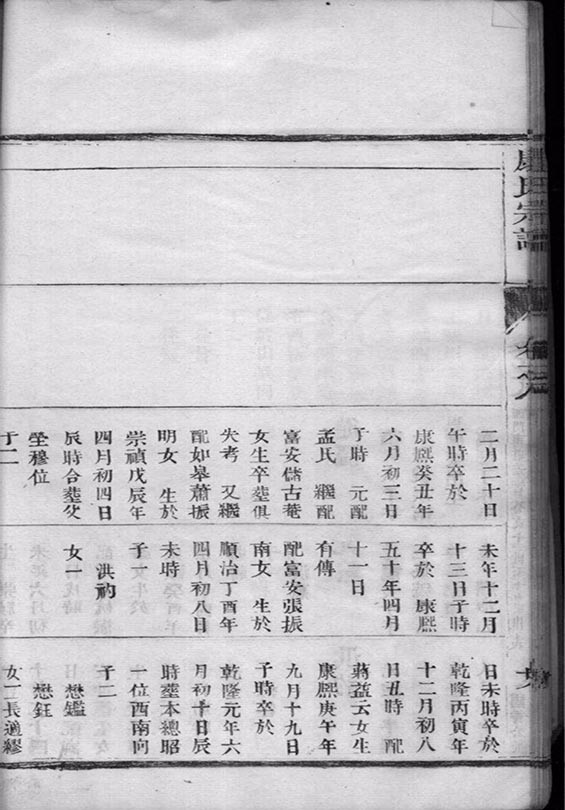 盧氏宗譜
卷
二月二十日
午時卒於
康熙癸丑年
六月初三日
子時 元配
孟氏 繼配
富安儲古菴
女生卒塟俱
失考 又繼
配如皋蕭振
明女 生於
崇禎戊辰年
四月初四日
辰時合塟父
塋穆位
子二
未年十二月
十三日子時
卒於 康熙
五十年四月
十一日
有傳
配富安張振
南女 生於
順治丁酉年
四月初八日
未時
子一
洪礿
女一
日未時卒於
乾隆丙寅年
十二月初八
日丑時 配
蔣益云女生
康熙庚午年
九月十九日
子時卒於
乾隆元年六
月初十日辰
時塟本總昭
一位西南向
子二
懋鑑
懋鈺
女二長適繆